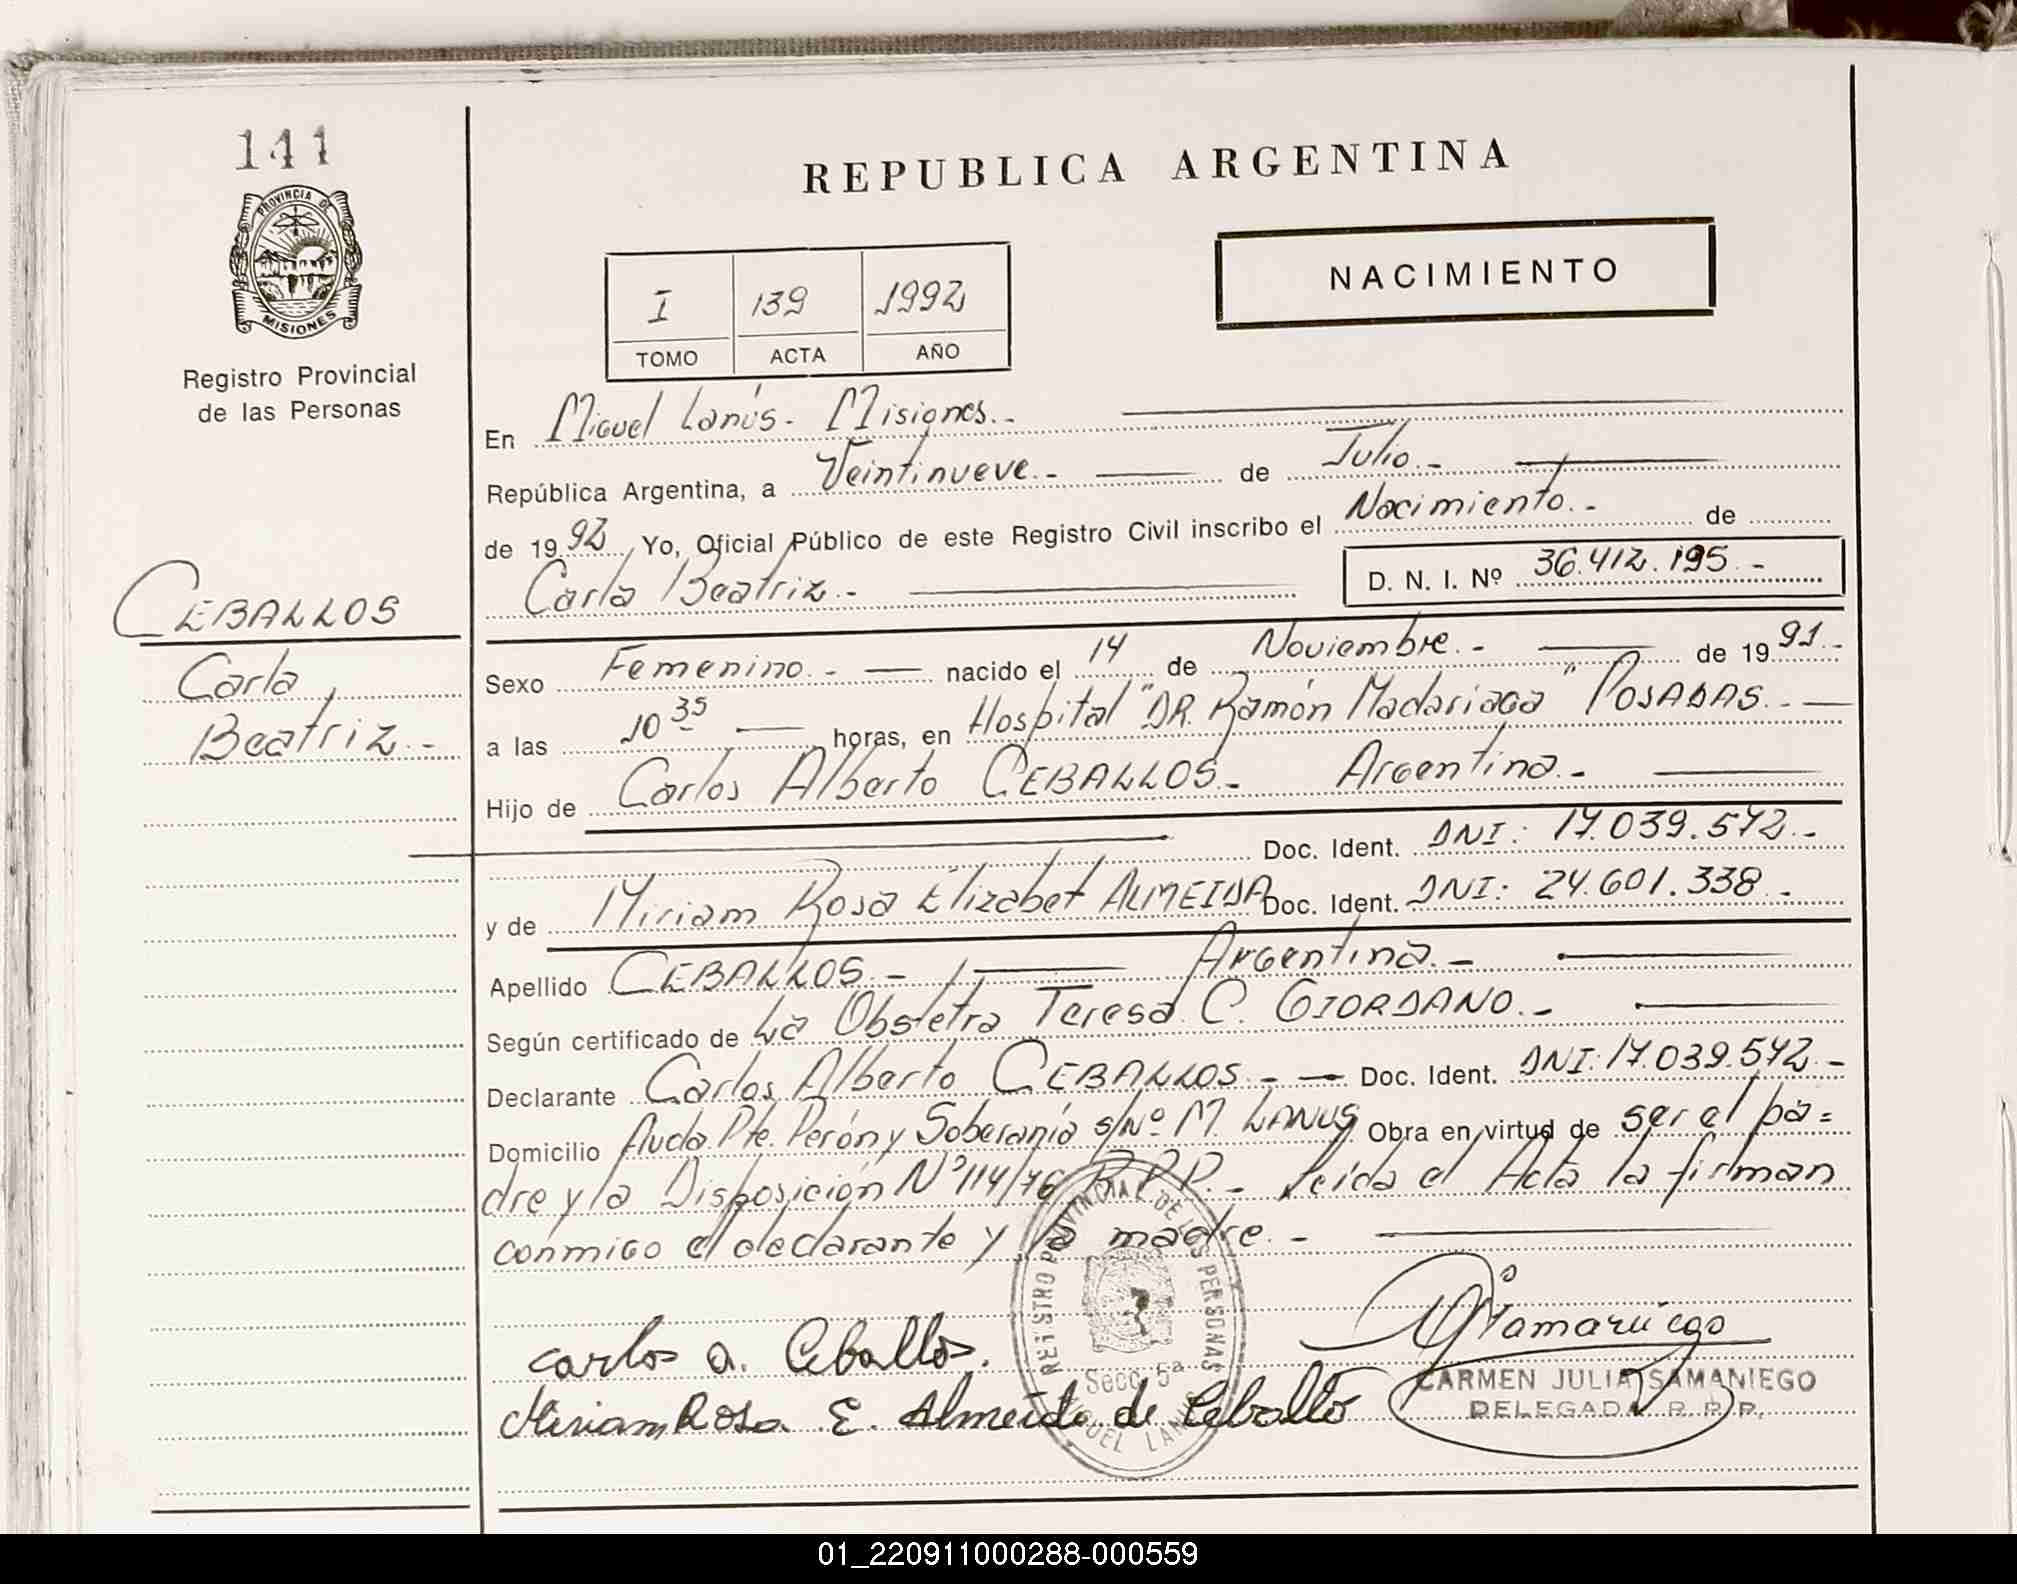 141
PROVINCIA DE
MISIONES
Registro Provincial
de las Personas
REPUBLICA ARGENTINA
NACIMIENTO
I 139 1992
TOMO ACTA AÑO
CEBALLOS
Carla
Beatriz.-
En Miguel Lanús.- Misiones.-
República Argentina, a Veintinueve.- de Julio.-
de 1992 Yo, Oficial Público de este Registro Civil inscribo el Nacimiento.- de
Carla Beatriz.- D. N. I. Nº 36.412.195.-
Sexo Femenino.- nacido el 14 de Noviembre.- de 1991.-
a las 10 35 horas, en Hospital "DR. Ramón Madariaga" POSADAS.-
Hijo de Carlos Alberto CEBALLOS.- Argentina.-
Doc. Ident. DNI: 17.039.572.-
y de Miriam Rosa Elizabet ALMEIDA Doc. Ident. DNI: 24.601.338.-
Apellido CEBALLOS.- Argentina.-
Según certificado de La Obstetra Teresa C. GIORDANO.-
Declarante Carlos Alberto CEBALLOS.- Doc. Ident. DNI: 17.039.572.-
Domicilio Avda. Pte. Perón y Soberanía s/Nº M. LANUS Obra en virtud de ser el pa=
dre y la Disposición Nº 114/76 R.P.P.- Leída el Acta la firman
conmigo el declarante y la madre.-
REGISTRO PROVINCIAL DE LAS PERSONAS
Secc. 5ª
MIGUEL LANUS
Carlos A. Ceballos.
Miriam Rosa E. Almeida de Ceballo
CARMEN JULIA SAMANIEGO
DELEGADA R. P. P.
01_220911000288-000559